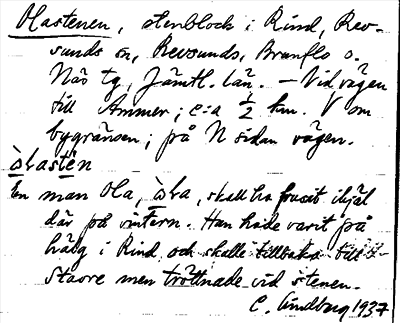 Olastenen, stenblock i Rind, Rev-
sunds sn, Revsunds, Brunflo o.
Näs tg, Jämtl. län. – Vid vägen
till Ammer; c:a ½ km. V om
bygränsen; på N sidan vägen.
àlastèn
En man Ola, àla, skall ha frusit ihjäl
där på vintern. Han hade varit på
hälg i Rind och skulle tillbaka till
Stavre men tröttnade vid stenen.
C. Lindberg 1937